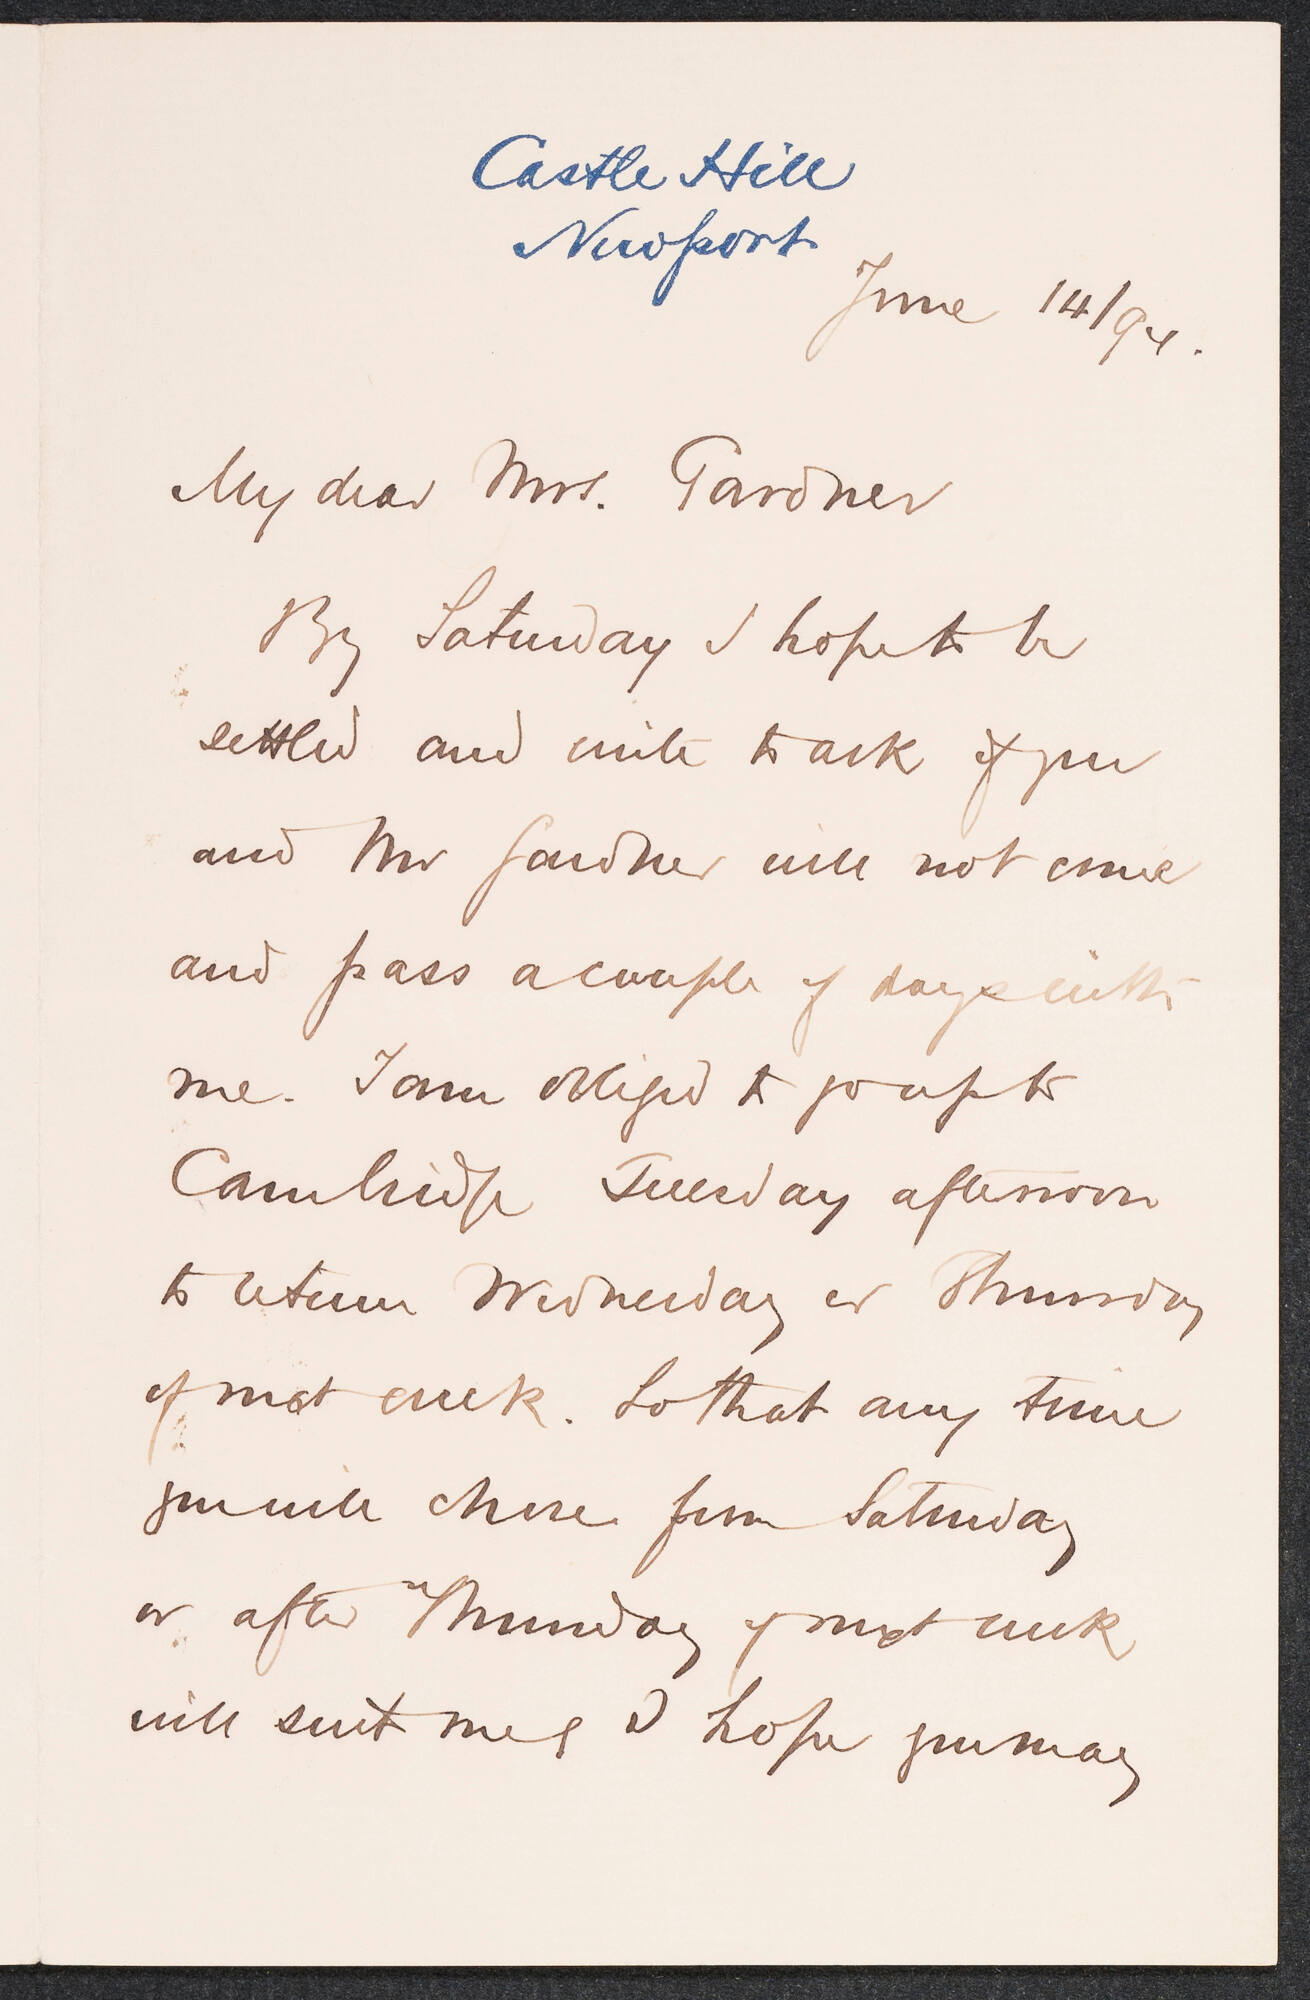 Castle Hill
Newport
June 14/94.
My dear Mrs. Gardner
By Saturday I hope to be
settled and write to ask if you
and Mr Gardner will not come
and pass a couple of days with
me. I am obliged to go up to
Cambridge Tuesday afternoon
to return Wednesday or Thursday
of next week. So that any time
you will chose from Saturday
or after Thursday of next week
will suit me & I hope you may